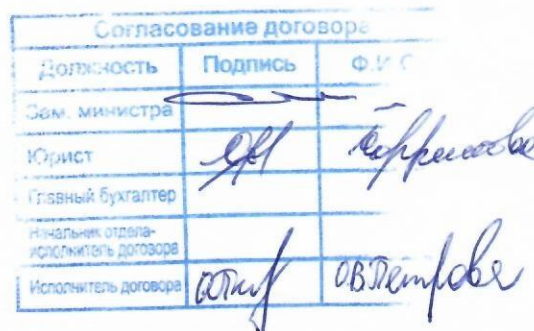 Согласование договора
Должность Подпись Ф.И.О
Зам. министра
Юрист
Главный бухгалтер
Начальник отдела-
исполнитель договора
Исполнитель договора О.В.Петрова